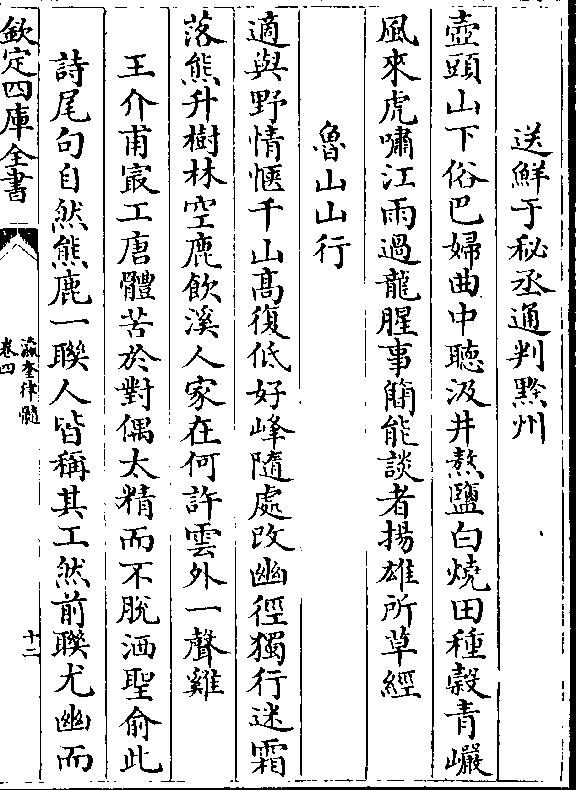 送鮮于秘丞通判黔州
壺頭山下俗巴婦曲中聽汲井熬鹽白燒田種穀青巖
風來虎嘯江雨過龍腥事簡能談者揚雄所草經
魯山山行
適與野情愜千山髙復低好峰隨處改幽徑獨行迷霜
落熊升樹林空鹿飲溪人家在何許雲外一聲雞
王介甫㝡工唐體苦於對偶太精而不脫洒聖俞此
詩尾句自然熊鹿一聯人皆稱其工然前聯尤幽而
欽定四庫全書
瀛奎律髓
卷四
十二